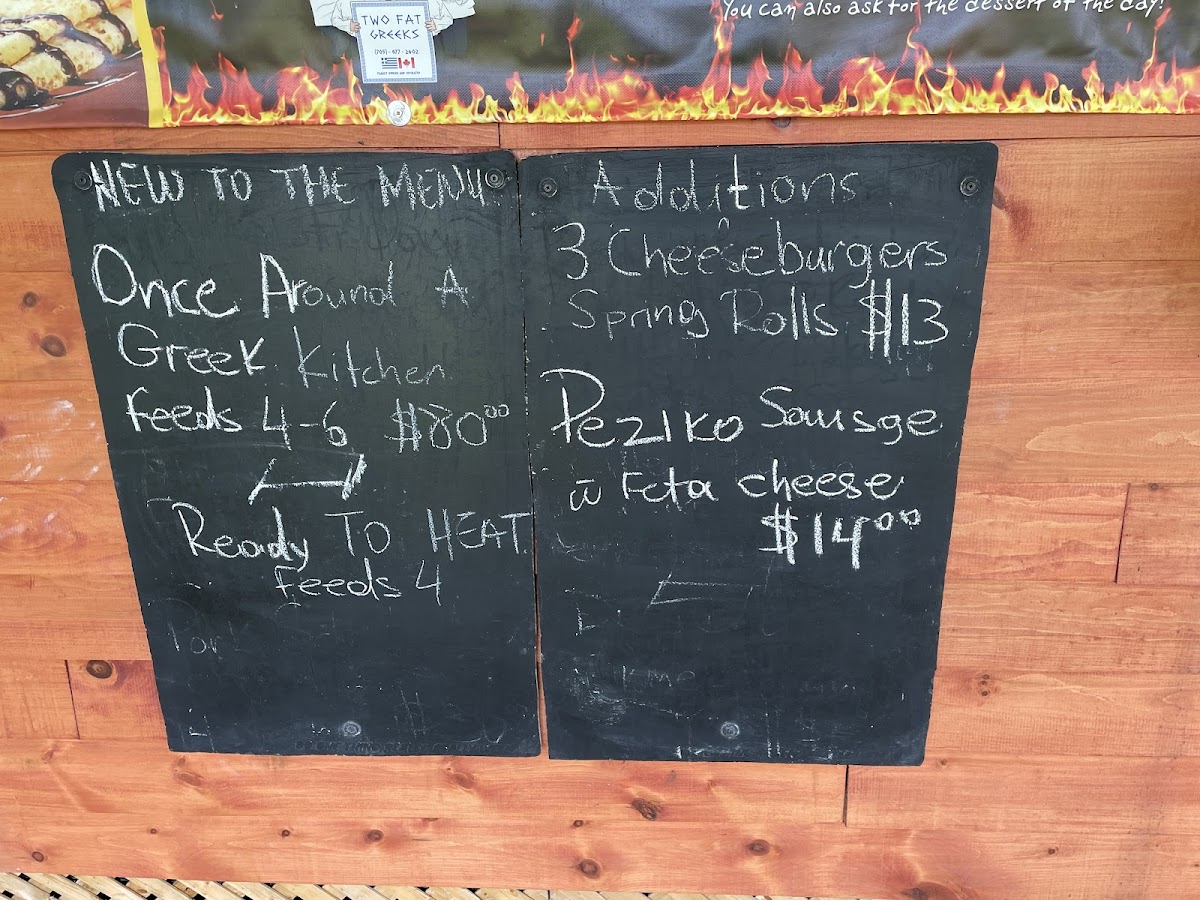 TWO FAT
GREEKS
You can also ask for the dessert of the day!
NEW TO THE MENU
Once Around A
Greek Kitchen
feeds 4-6 $80⁰⁰
Ready TO HEAT
feeds 4
Additions
3 Cheeseburgers
Spring Rolls $13
Peziko Sausge
w̄ Feta cheese
$14⁰⁰